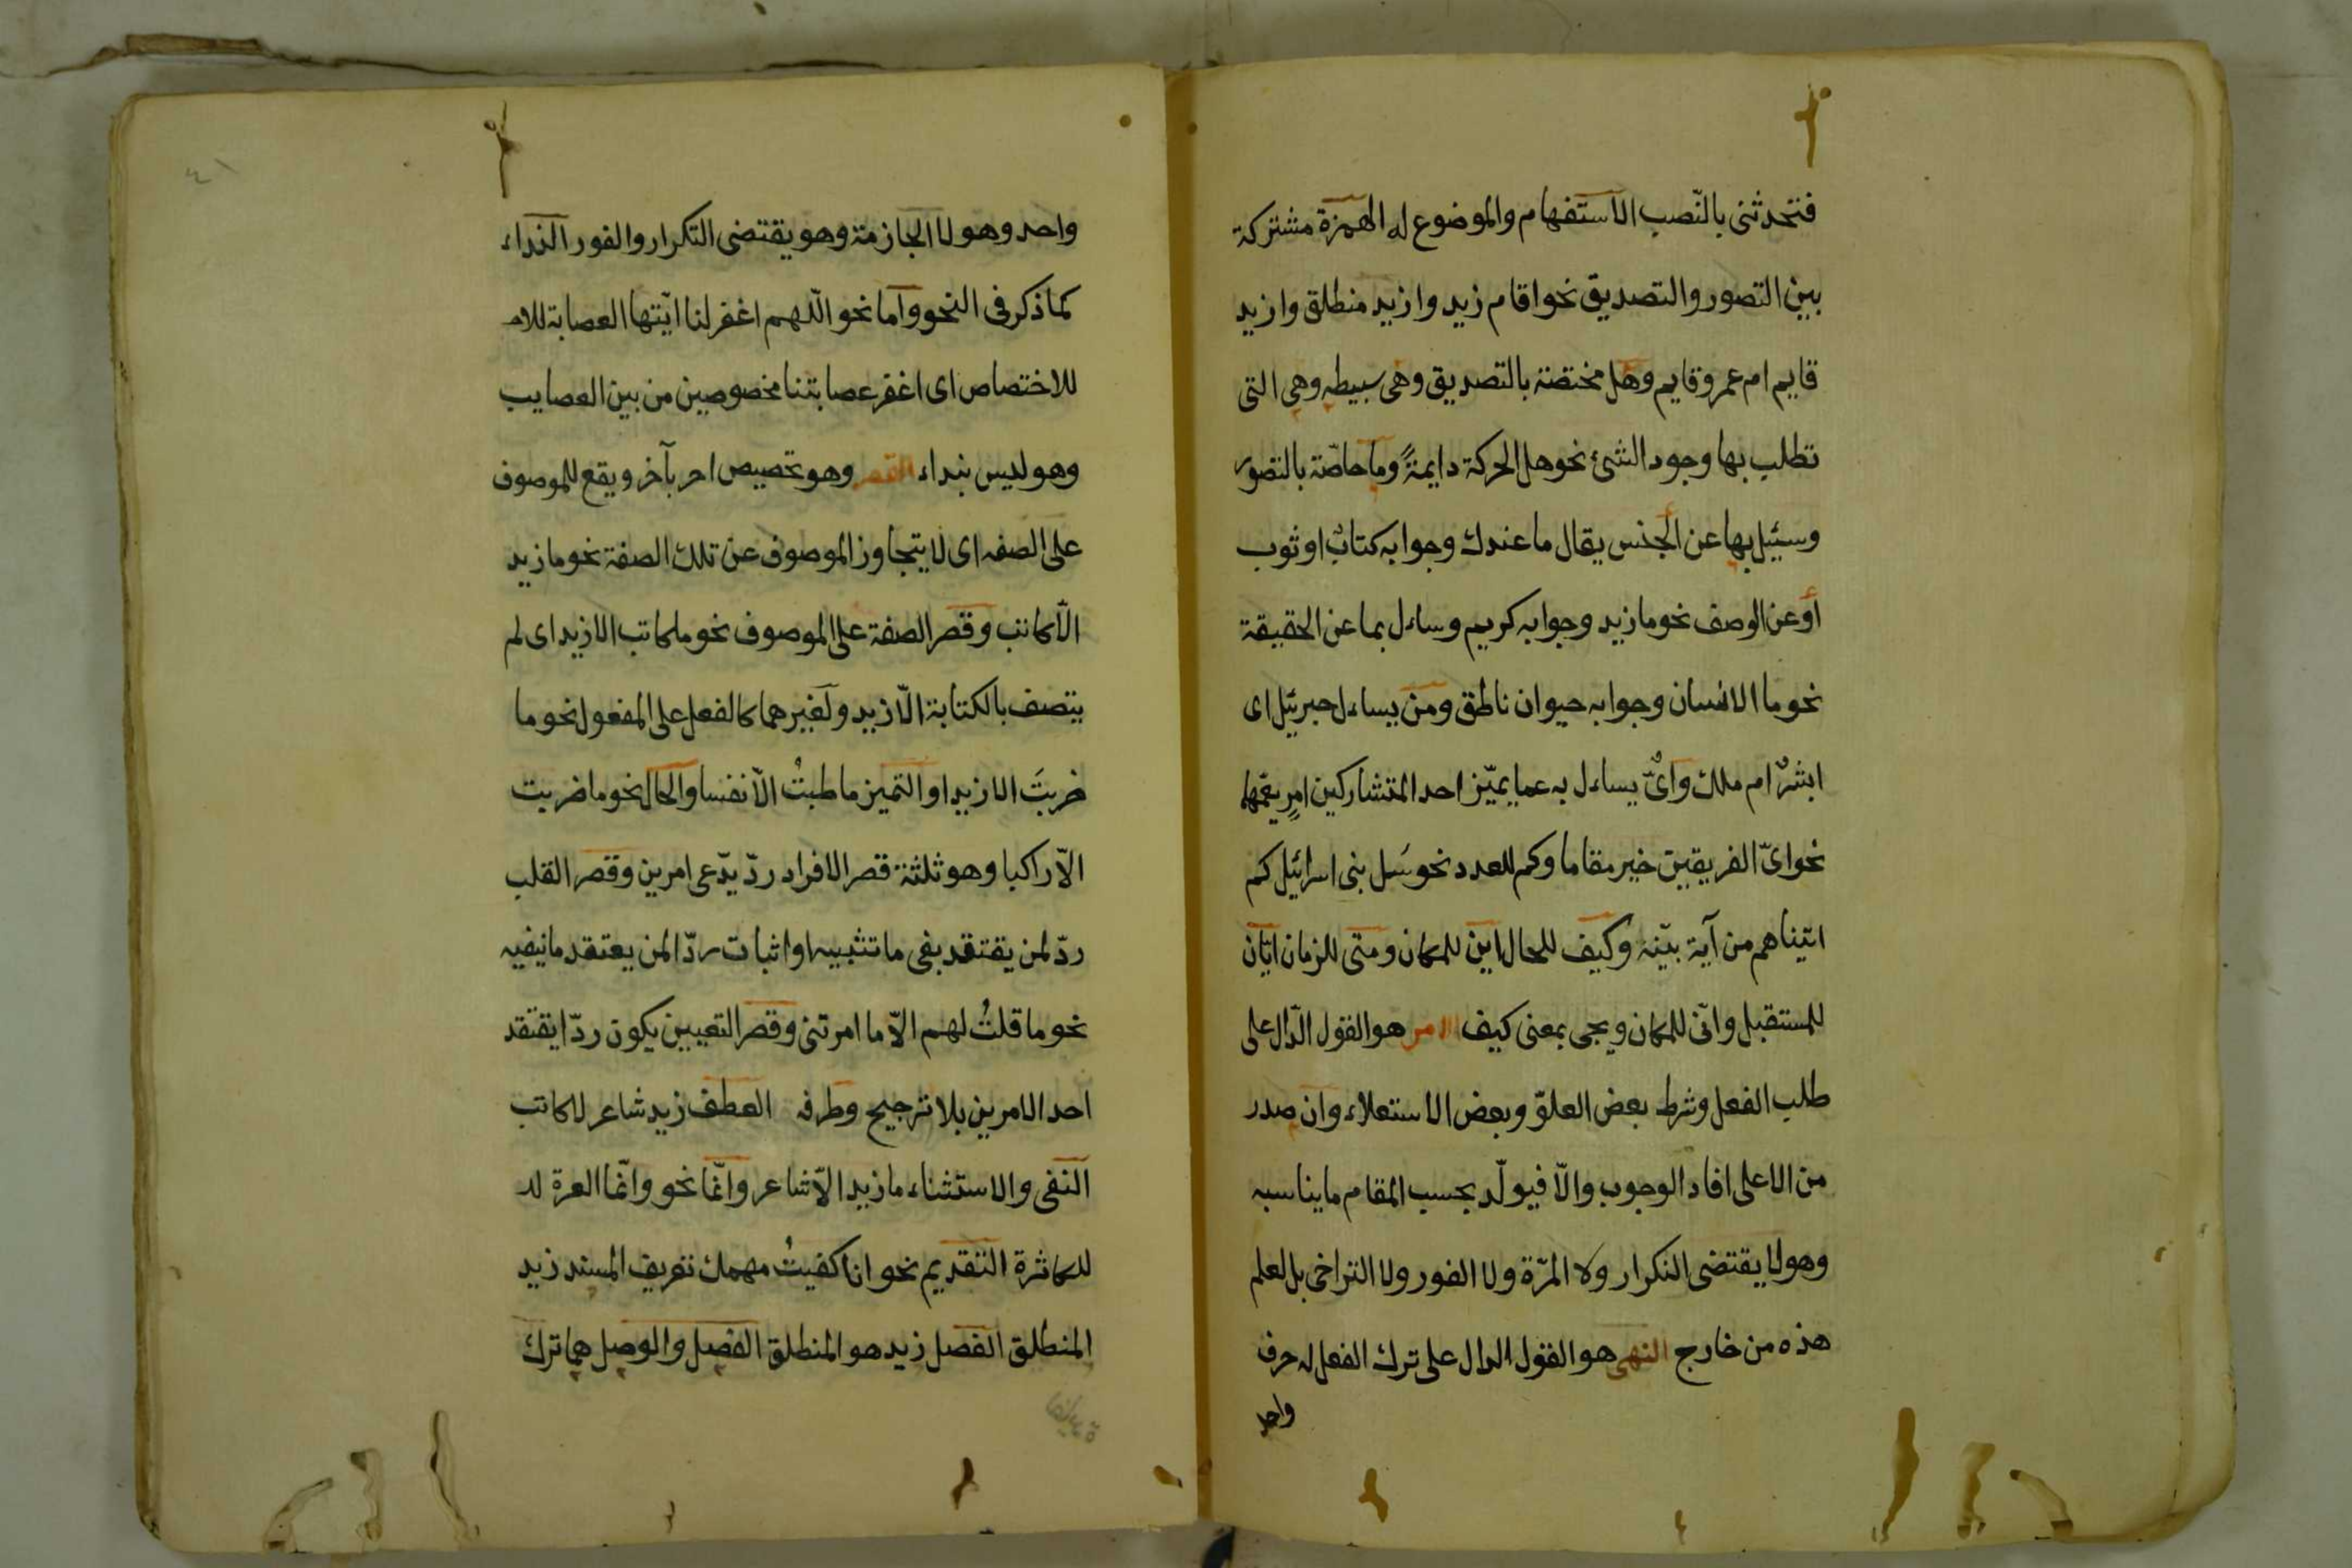 فتحدثنى بالنّصب الاستفهام والموضوع له الهمزة مشتركة
بين التصور والتصديق نحو اقام زيد وازيد منطلق وازيد
قايم ام عمرو قايم وهل مختصة بالتصديق وهى بسيطه وهى التى
تطلب بها وجود الشئ نحو هل الحركة دايمةً وما خاصّة بالتصور
وسئيل بها عن الجنس يقال ما عندك وجوابه كتابٌ او ثوب
أو عن الوصف نحو ما زيد وجوابه كريم وساءل بما عن الحقيقة
نحو ما الانسان وجوابه حيوان ناطق ومن يساءل جبرئيل اى
ابشرٌ ام ملك واىٌّ يساءل به عما يميّز احد المتشاركين امرٍ يعمّهما
نحو اىّ الفريقين خير مقاما وكم للعدد نحو سَل بنى اسرائيل كم
اتيناهم من آية بيّنة وكيف للحال اين للمكان ومتى للزمان ايّان
للمستقبل وانّى للمكان ويجى بمعنى كيف الامر هو القول الدّال على
طلب الفعل وشرط بعض العلوّ وبعض الاستعلاء وان صدر
من الاعلى افاد الوجوب والّا فيولّد بحسب المقام ما يناسبه
وهو لا يقتضى التكرار ولا المرّة ولا الفور ولا التراخى بل لعلم
هذه من خارج النهى هو القول الدال على ترك الفعل له حرف
واحد
٤١
واحد وهو لا الجازمة وهو يقتضى التكرار والفور النداء
كما ذكر فى النحو واما نحو اللّهم اغفر لنا ايّتها العصابة للاحـ
للاختصاص اى اغفر عصابتنا مخصوصين من بين العصايب
وهو ليس بنداء القصر وهو تخصيص احر بآخر ويقع للموصوف
على الصفه اى لا يتجاوز الموصوف عن تلك الصفة نحو ما زيد
الّا كاتب وقصر الصفة على الموصوف نحو ما كاتب الا زيد اى لم
يتصف بالكتابة الّا زيد ولغيرهما كالفعل على المفعول نحو ما
ضربتَ الا زيدا والتميز ما طبتُ الّا نفسا والحال نحو ما ضربت
الّا راكبا وهو ثلثة قصر الافراد ردّ يدّعى امرين وقصر القلب
ردّ لمن يفتقد بفى ما تثبيه او اثبات ردّا لمن يعتقد ما نيفيه
نحو ما قلتُ لهم الّا ما امرتنى وقصر التعيين يكون ردّا يفتقد
احد الامرين بلا ترجيح وطرفه العطف زيد شاعر لا كاتب
النفى والاستثناء ما زيد الّا شاعر وانّما نحو وانّما العزة لد
للكاثرة التقديم نحو انا كفيتُ مهمك تعريف المسند زيد
المنطلق الفصل زيد هو المنطلق الفصل والوصل هما ترك